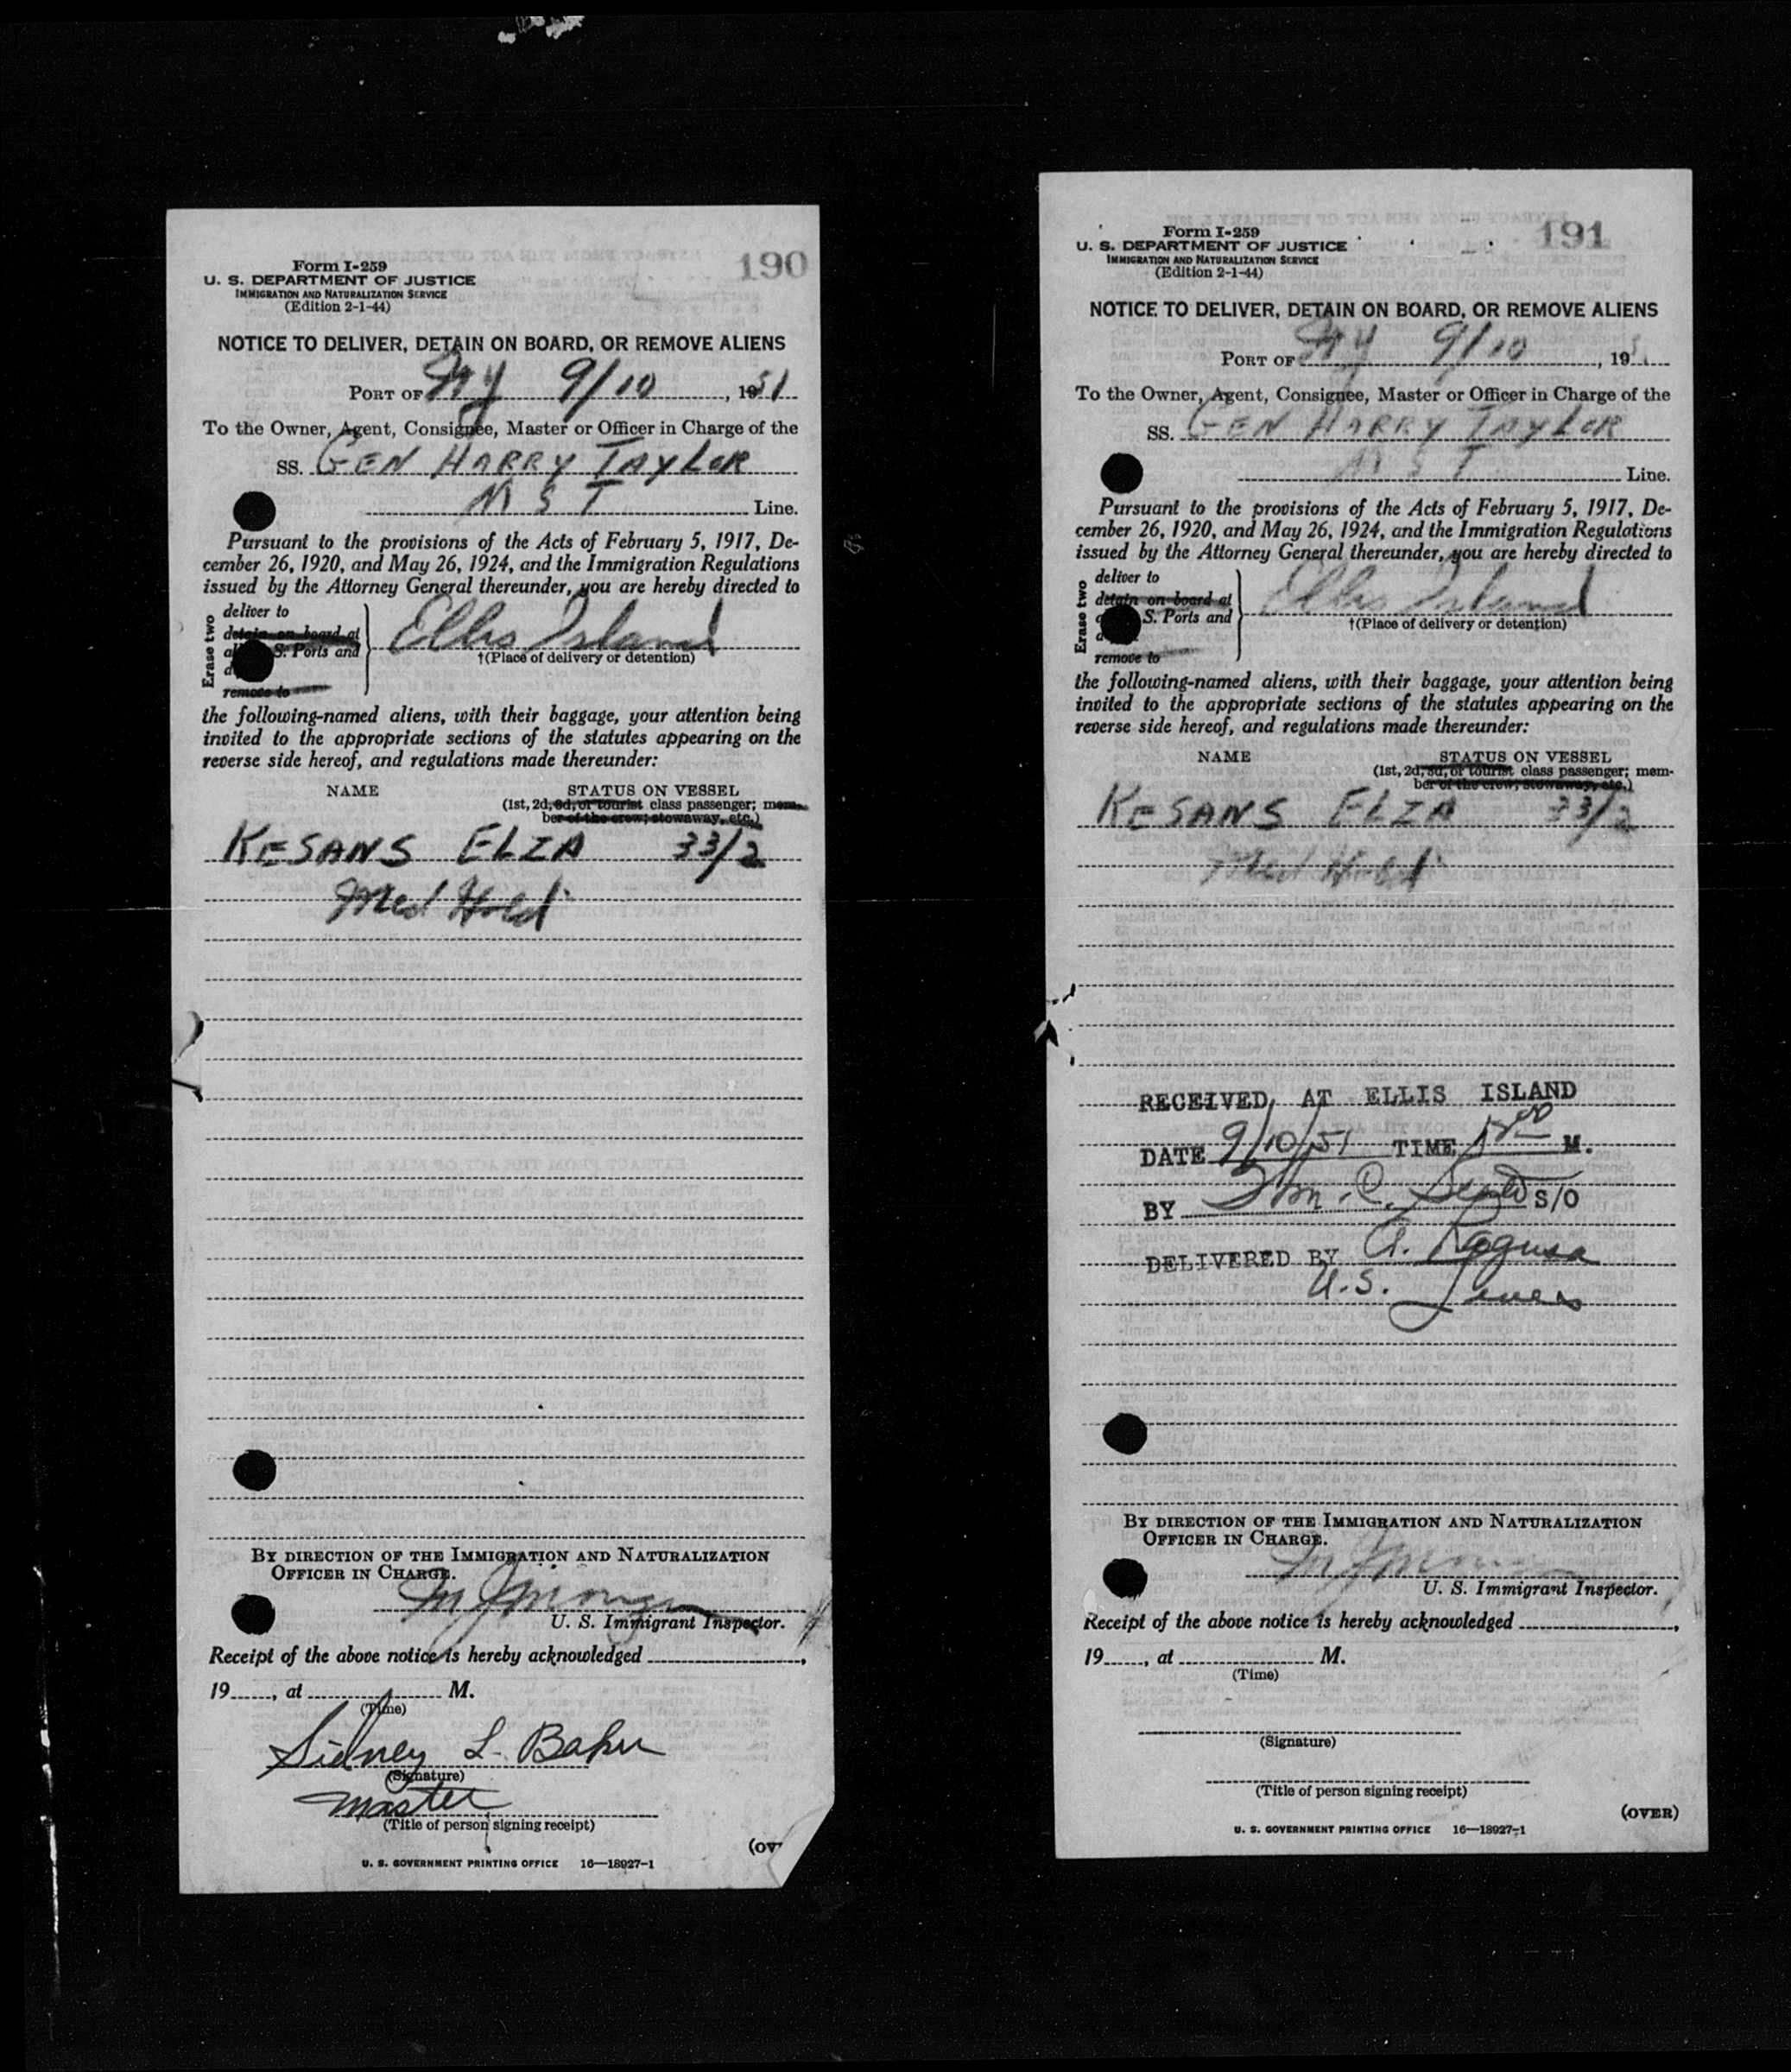 190
Form I-259
U. S. DEPARTMENT OF JUSTICE
IMMIGRATION AND NATURALIZATION SERVICE
(Edition 2-1-44)
NOTICE TO DELIVER, DETAIN ON BOARD, OR REMOVE ALIENS
PORT OF NY 9/10, 1951
To the Owner, Agent, Consignee, Master or Officer in Charge of the
SS. GEN HARRY TAYLOR
M S T Line.
Pursuant to the provisions of the Acts of February 5, 1917, De-
cember 26, 1920, and May 26, 1924, and the Immigration Regulations
issued by the Attorney General thereunder, you are hereby directed to
Erase two
deliver to
detain on board at
S. Ports and
remove to
Ellis Island
†(Place of delivery or detention)
the following-named aliens, with their baggage, your attention being
invited to the appropriate sections of the statutes appearing on the
reverse side hereof, and regulations made thereunder:
NAME STATUS ON VESSEL
(1st, 2d, 3d, or tourist class passenger; mem-
ber of the crew; stowaway, etc.)
KESANS ELZA 33/2
Med Hold
BY DIRECTION OF THE IMMIGRATION AND NATURALIZATION
OFFICER IN CHARGE.
U. S. Immigrant Inspector.
Receipt of the above notice is hereby acknowledged
19, at M.
(Time)
Sidney L. Baker
(Signature)
Master
(Title of person signing receipt)
(OV
U. S. GOVERNMENT PRINTING OFFICE 16—18927-1
191
Form I-259
U. S. DEPARTMENT OF JUSTICE
IMMIGRATION AND NATURALIZATION SERVICE
(Edition 2-1-44)
NOTICE TO DELIVER, DETAIN ON BOARD, OR REMOVE ALIENS
PORT OF NY 9/10, 195
To the Owner, Agent, Consignee, Master or Officer in Charge of the
SS. GEN HARRY TAYLOR
M S T Line.
Pursuant to the provisions of the Acts of February 5, 1917, De-
cember 26, 1920, and May 26, 1924, and the Immigration Regulations
issued by the Attorney General thereunder, you are hereby directed to
Erase two
deliver to
detain on board at
S. Ports and
remove to
Ellis Island
†(Place of delivery or detention)
the following-named aliens, with their baggage, your attention being
invited to the appropriate sections of the statutes appearing on the
reverse side hereof, and regulations made thereunder:
NAME STATUS ON VESSEL
(1st, 2d, 3d, or tourist class passenger; mem-
ber of the crew; stowaway, etc.)
KESANS ELZA 33/2
Med Hold
RECEIVED AT ELLIS ISLAND
DATE 9/10/51 TIME M.
BY S/O
DELIVERED BY A. Ragusa
U.S. Lines
BY DIRECTION OF THE IMMIGRATION AND NATURALIZATION
OFFICER IN CHARGE.
U. S. Immigrant Inspector.
Receipt of the above notice is hereby acknowledged
19, at M.
(Time)
(Signature)
(Title of person signing receipt)
(OVER)
U. S. GOVERNMENT PRINTING OFFICE 16—18927-1